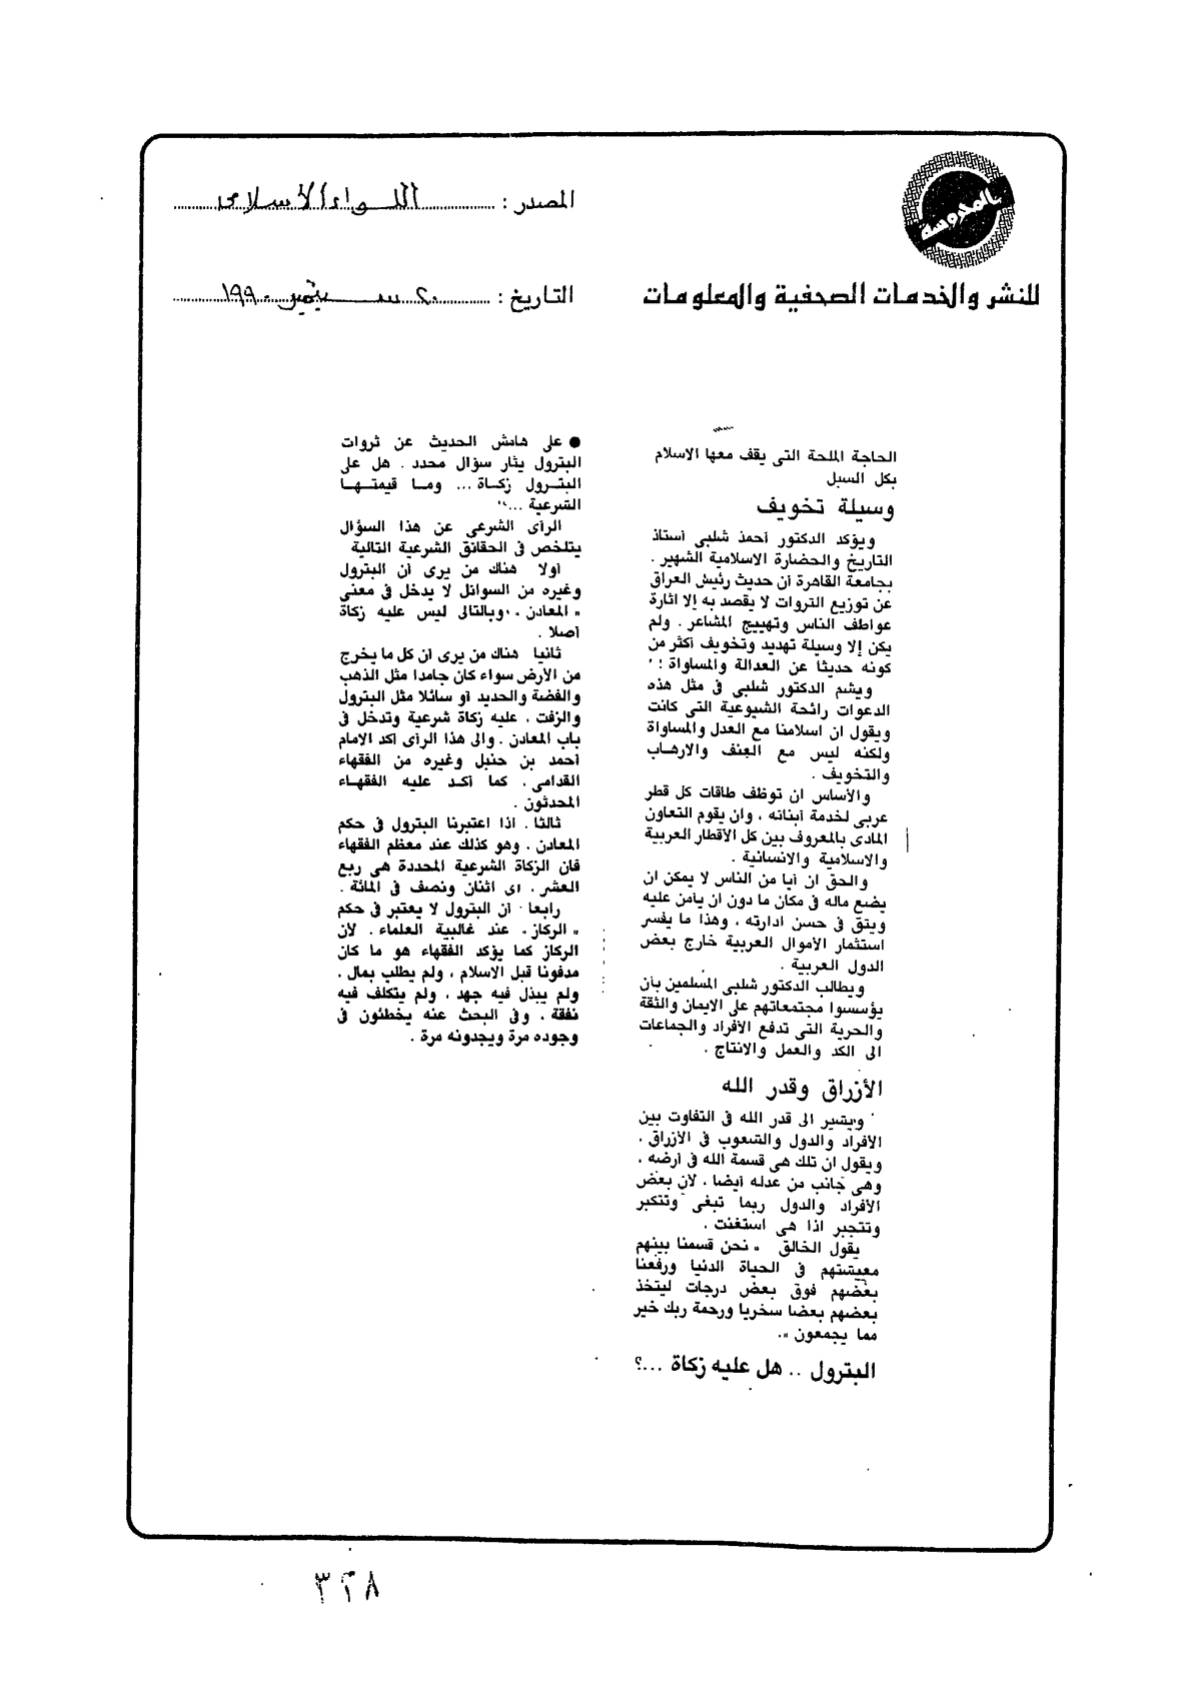 المحروسة
للنشر والخدمات الصحفية والمعلومات
المصدر : اللواء الاسلامى
التاريخ : ٢٠ سبتمبر ١٩٩٠
الحاجة الملحة التى يقف معها الاسلام
بكل السبل
وسيلة تخويف
ويؤكد الدكتور أحمد شلبى أستاذ
التاريخ والحضارة الاسلامية الشهير .
بجامعة القاهرة أن حديث رئيش العراق
عن توزيع الثروات لا يقصد به إلا اثارة
عواطف الناس وتهييج المشاعر . ولم
يكن إلا وسيلة تهديد وتخويف أكثر من
كونه حديثا عن العدالة والمساواة !
ويشم الدكتور شلبى فى مثل هذه
الدعوات رائحة الشيوعية التى كانت
ويقول ان اسلامنا مع العدل والمساواة
ولكنه ليس مع العنف والارهاب
والتخويف .
والأساس ان توظف طاقات كل قطر
عربى لخدمة أبنائه ، وان يقوم التعاون
المادى بالمعروف بين كل الأقطار العربية
والاسلامية والانسانية .
والحق ان أيا من الناس لا يمكن ان
يضع ماله فى مكان ما دون ان يأمن عليه
ويثق فى حسن ادارته ، وهذا ما يفسر
استثمار الأموال العربية خارج بعض
الدول العربية .
ويطالب الدكتور شلبى المسلمين بأن
يؤسسوا مجتمعاتهم على الايمان والثقة
والحرية التى تدفع الأفراد والجماعات
الى الكد والعمل والانتاج .
الأزراق وقدر الله
ويشير الى قدر الله فى التفاوت بين
الأفراد والدول والشعوب فى الأزراق .
ويقول ان تلك هى قسمة الله فى أرضه ،
وهى جانب من عدله أيضا ، لأن بعض
الأفراد والدول ربما تبغى وتتكبر
وتتجبر اذا هى استغنت .
يقول الخالق « نحن قسمنا بينهم
معيشتهم فى الحياة الدنيا ورفعنا
بعضهم فوق بعض درجات ليتخذ
بعضهم بعضا سخريا ورحمة ربك خير
مما يجمعون ».
البترول .. هل عليه زكاة ...؟
● على هامش الحديث عن ثروات
البترول يثار سؤال محدد . هل على
البترول زكاة ... وما قيمتها
الشرعية ...
الرأى الشرعى عن هذا السؤال
يتلخص فى الحقائق الشرعية التالية
أولا هناك من يرى أن البترول
وغيره من السوائل لا يدخل فى معنى
« المعادن » وبالتالى ليس عليه زكاة
أصلا .
ثانيا هناك من يرى ان كل ما يخرج
من الأرض سواء كان جامدا مثل الذهب
والفضة والحديد أو سائلا مثل البترول
والزفت ، عليه زكاة شرعية وتدخل فى
باب المعادن . والى هذا الرأى أكد الامام
أحمد بن حنبل وغيره من الفقهاء
القدامى . كما أكد عليه الفقهاء
المحدثون .
ثالثا . اذا اعتبرنا البترول فى حكم
المعادن . وهو كذلك عند معظم الفقهاء
فان الزكاة الشرعية المحددة هى ربع
العشر . اى اثنان ونصف فى المائة .
رابعا ان البترول لا يعتبر فى حكم
« الركاز » عند غالبية العلماء . لأن
الركاز كما يؤكد الفقهاء هو ما كان
مدفونا قبل الاسلام ، ولم يطلب بمال .
ولم يبذل فيه جهد . ولم يتكلف فيه
نفقة ، وفى البحث عنه يخطئون فى
وجوده مرة ويجدونه مرة .
٣٢٨